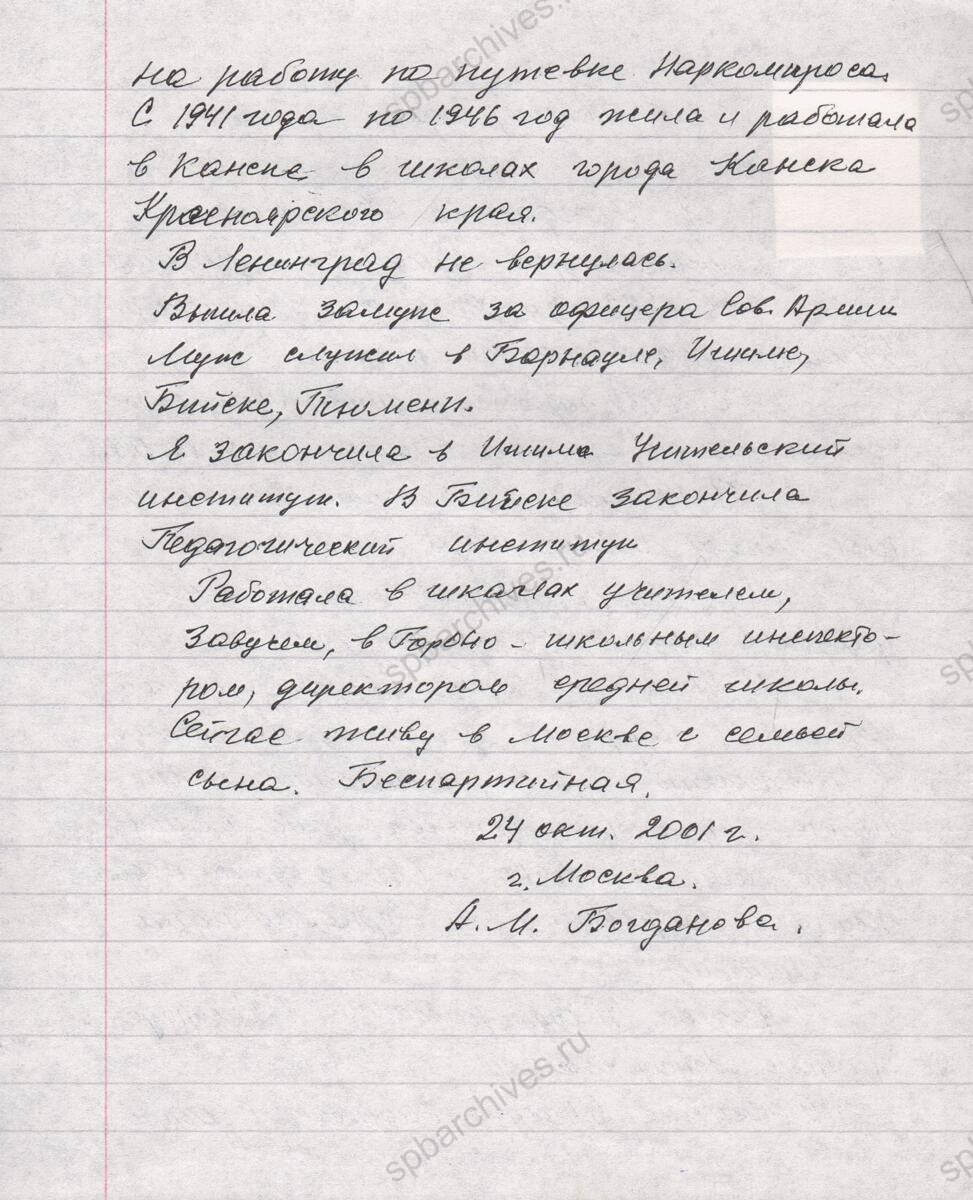 на работу по путевке Наркомпроса.
С 1941 года по 1946 год жила и работала
в Канске в школах города Канска
Красноярского края.
В Ленинград не вернулась.
Вышла замуж за офицера Сов. Армии
Муж служил в Барнауле, Ишиме,
Бийске, Тюмени.
Я закончила в Ишиме Учительский
институт. В Бийске закончила
Педагогический институт
Работала в школах учителем,
завучем, в Гороно - школьным инспекто-
ром, директором средней школы.
Сейчас живу в Москве с семьей
сына. Беспартийная.
24 окт. 2001 г.
г. Москва.
А. М. Богданова.
spbarchives.ru
spbarchives.ru
spbarchives.ru
spbarchives.ru